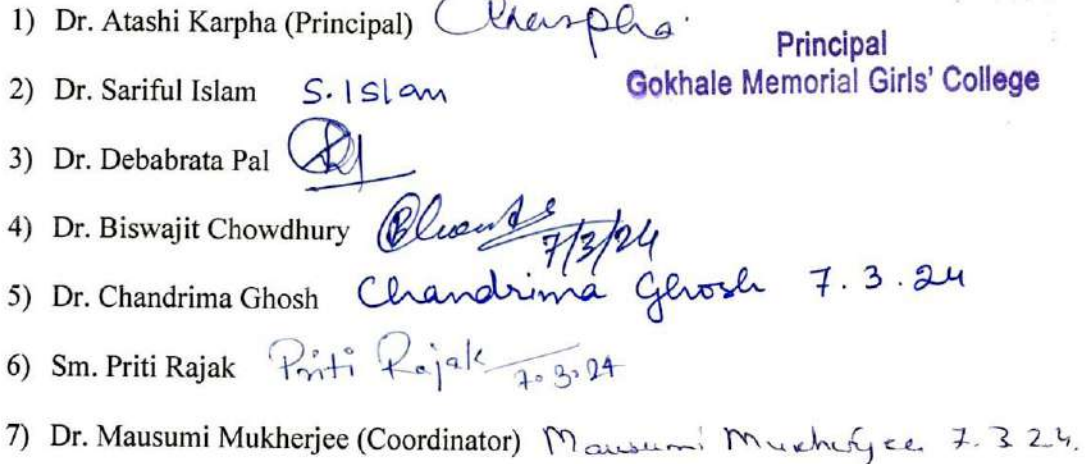 1) Dr. Atashi Karpha (Principal)
Principal
Gokhale Memorial Girls' College
2) Dr. Sariful Islam S. Islam
3) Dr. Debabrata Pal
4) Dr. Biswajit Chowdhury 7/3/24
5) Dr. Chandrima Ghosh Chandrima Ghosh 7.3.24
6) Sm. Priti Rajak Priti Rajak 7.3.24
7) Dr. Mausumi Mukherjee (Coordinator) Mausumi Mukherjee 7.3 24.